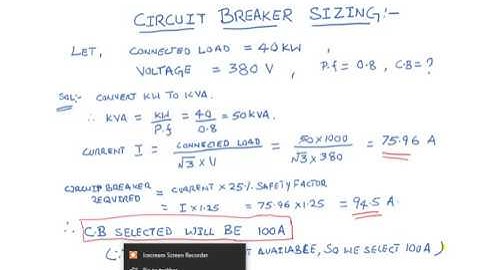 CIRCUIT BREAKER SIZING:-
LET, CONNECTED LOAD = 40 KW,
VOLTAGE = 380 V, P.f = 0.8, C.B = ?
SOL:- CONVERT KW TO KVA.
∴ KVA = KW/P.f = 40/0.8 = 50 KVA.
CURRENT I = CONNECTED LOAD/√3 × V = 50 × 1000/√3 × 380 = 75.96 A
CIRCUIT BREAKER REQUIRED = CURRENT × 25% SAFETY FACTOR
= I × 1.25 = 75.96 × 1.25 = 94.5 A.
∴ C.B SELECTED WILL BE 100A
AVAILABLE, SO WE SELECT 100A)
Icecream Screen Recorder